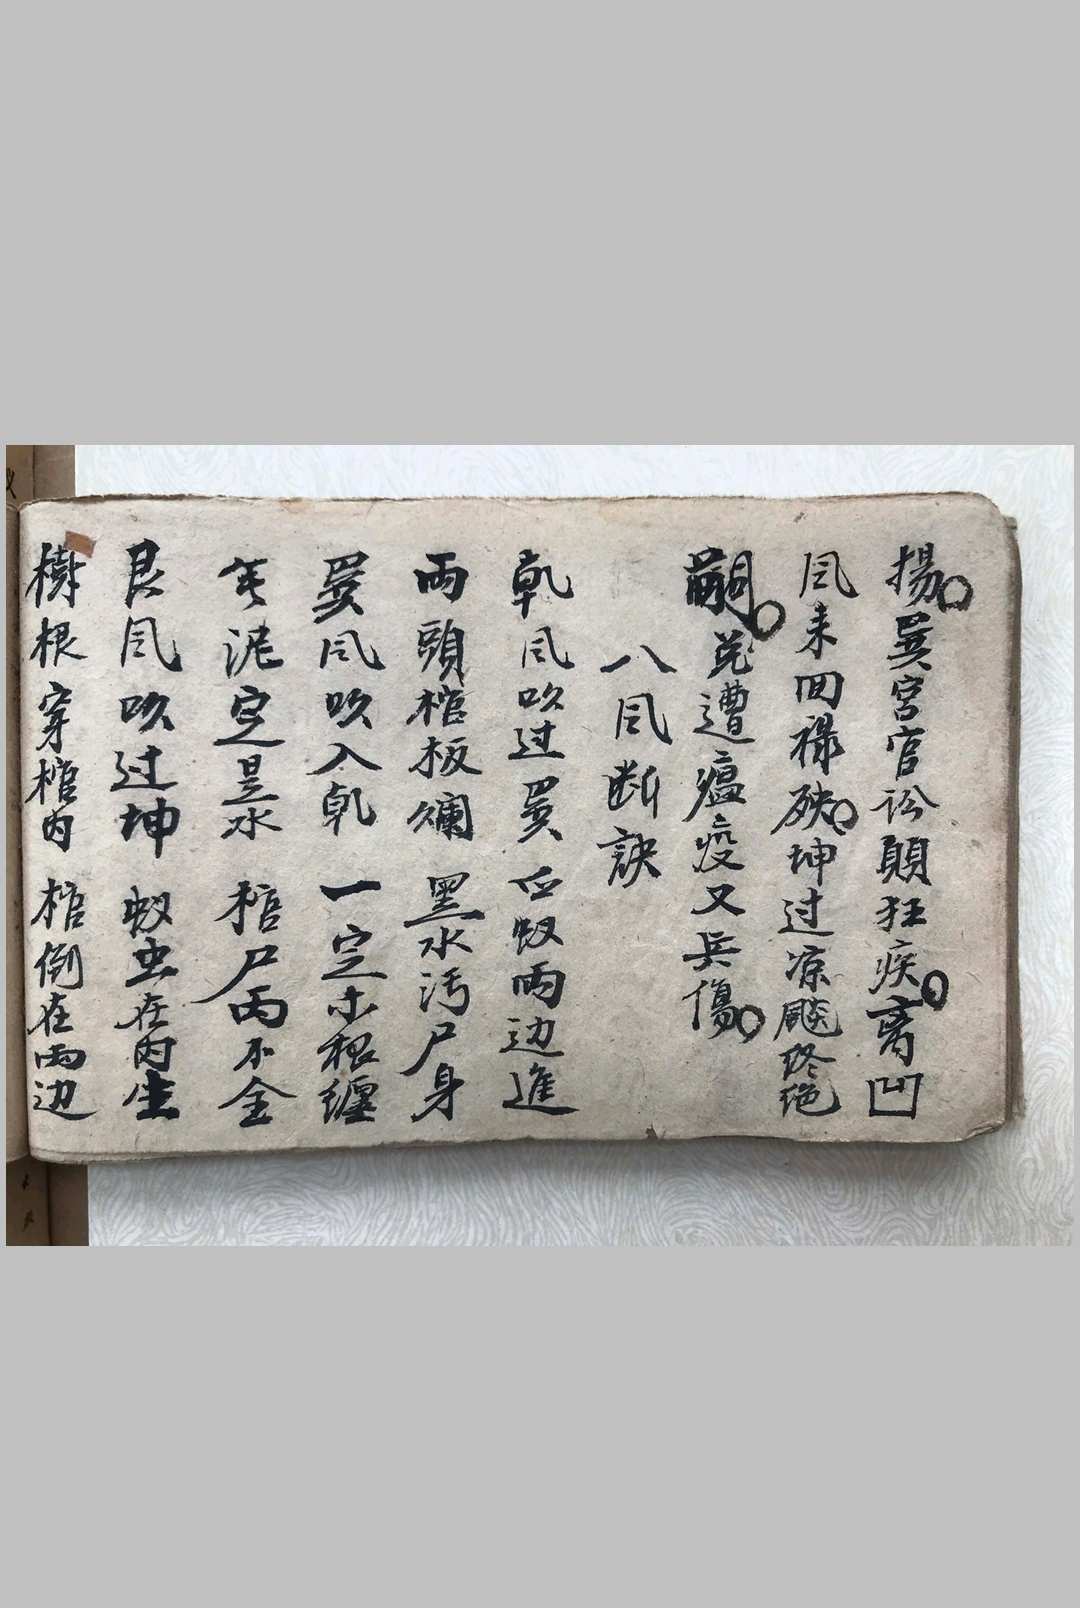 揚巽宮官訟顛狂疾离凹
風来囬祿殃坤过凉飈終绝
嗣兑遭瘟疫又兵傷
八風断訣
乾風吹过巽 白蚁兩边進
兩頭棺板爛 黑水污尸身
巽風吹入乾 一定木根纏
泥定是水 棺尸內不全
艮風吹过坤 蚁虫在內生
樹根穿棺內 棺倒在兩边